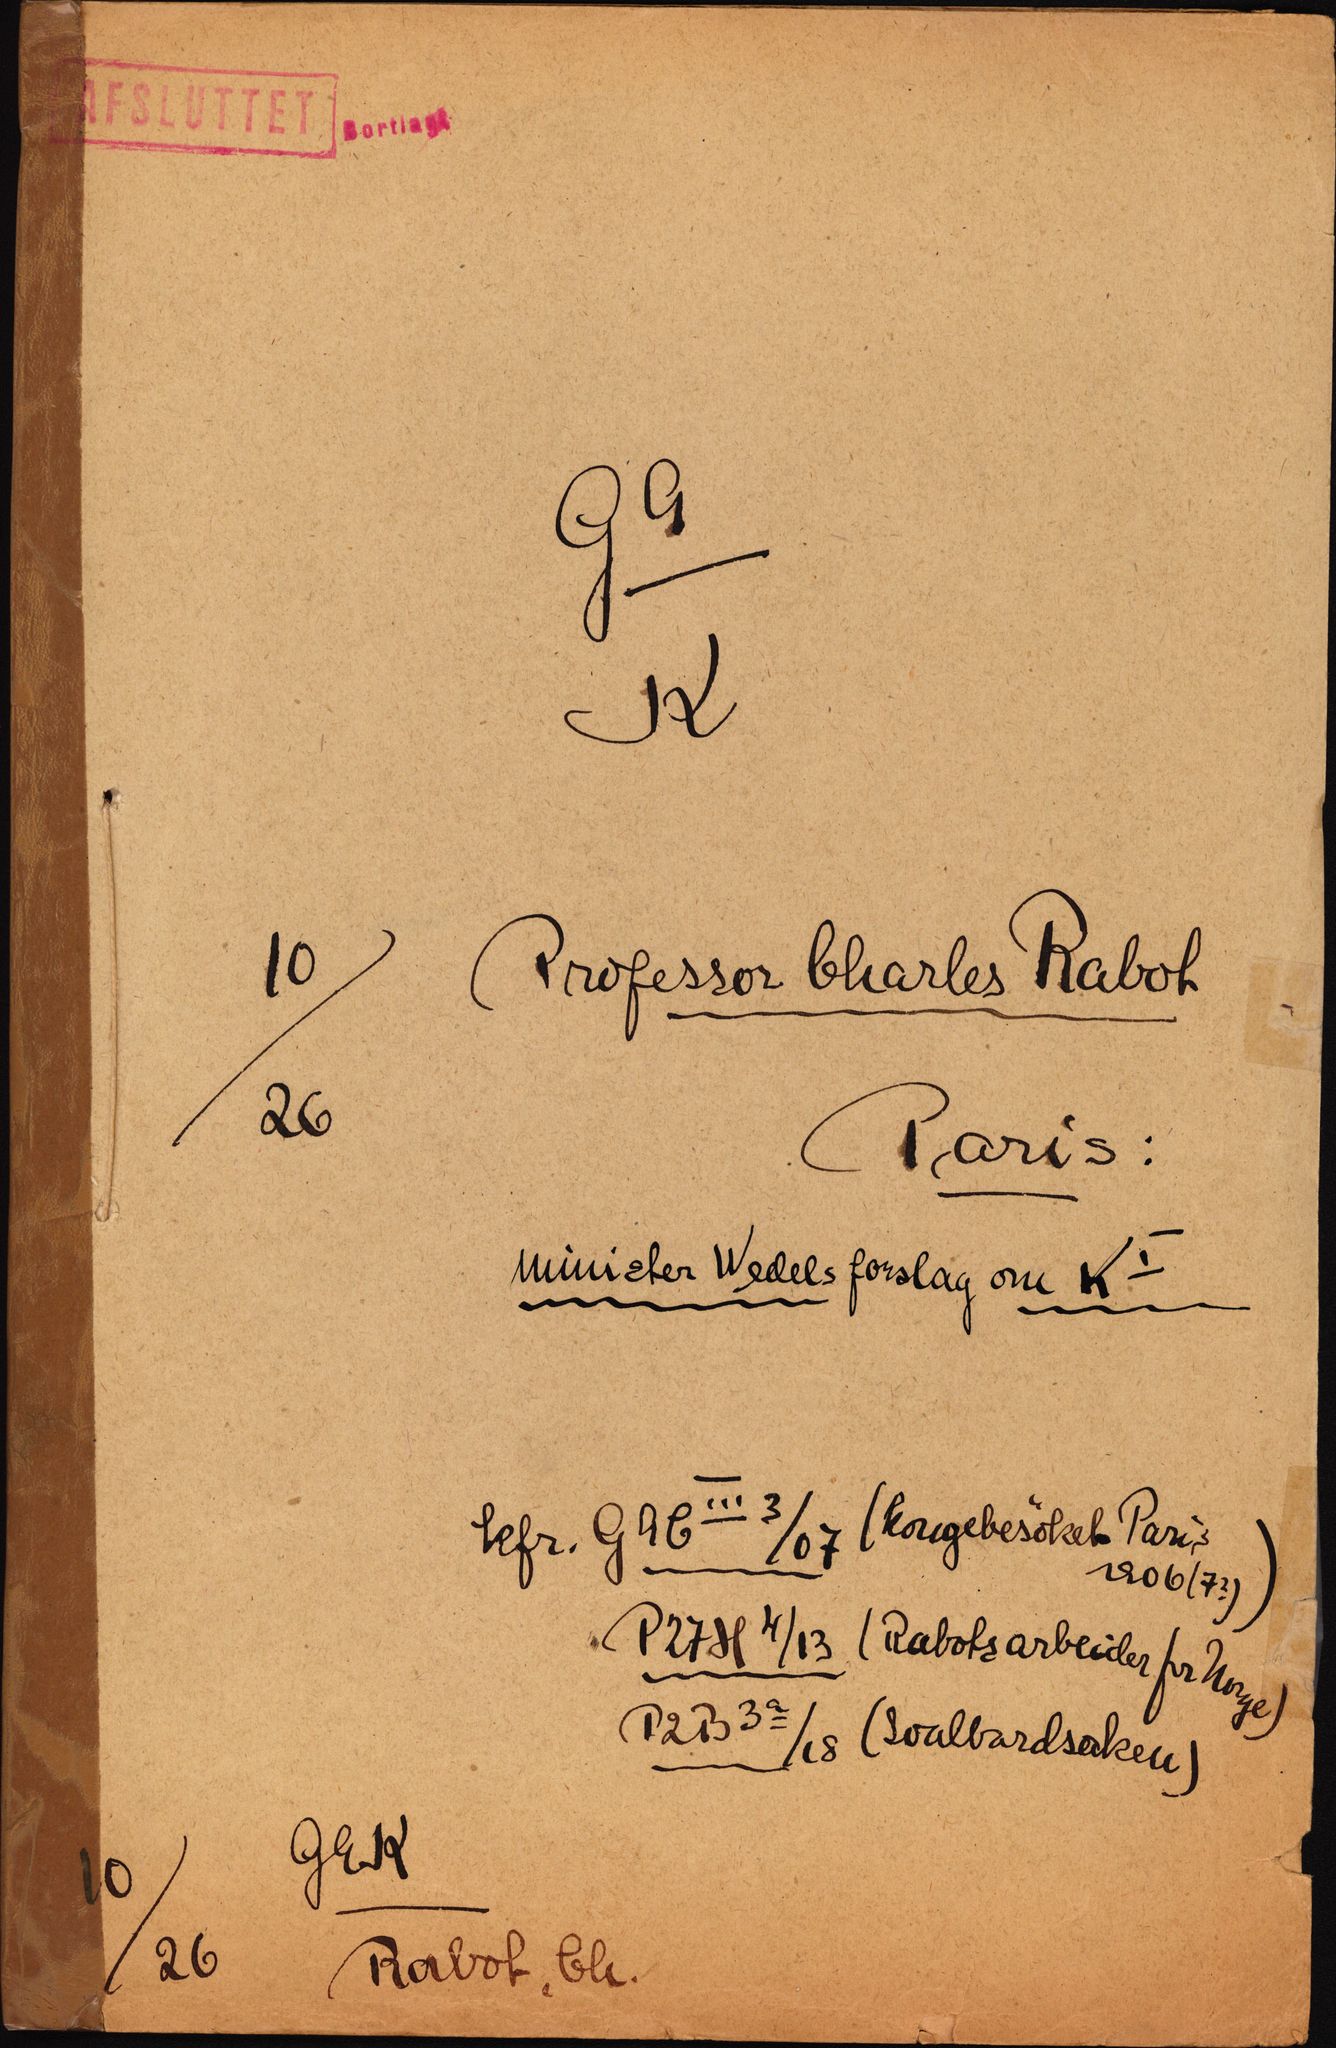 AFSLUTTET Bortlagt
G 9
K
10/26 Professor Charles Rabot
Paris:
Minister Wedels forslag om K I
kfr. G 9 C III 3/07 (Kongebesöket Paris
1906 (7?))
P27H 4/13 (Rabots arbeider for Norge)
P2B 3a/18 (Svalbardsaken)
10/26 G9K
Rabot, Ch.